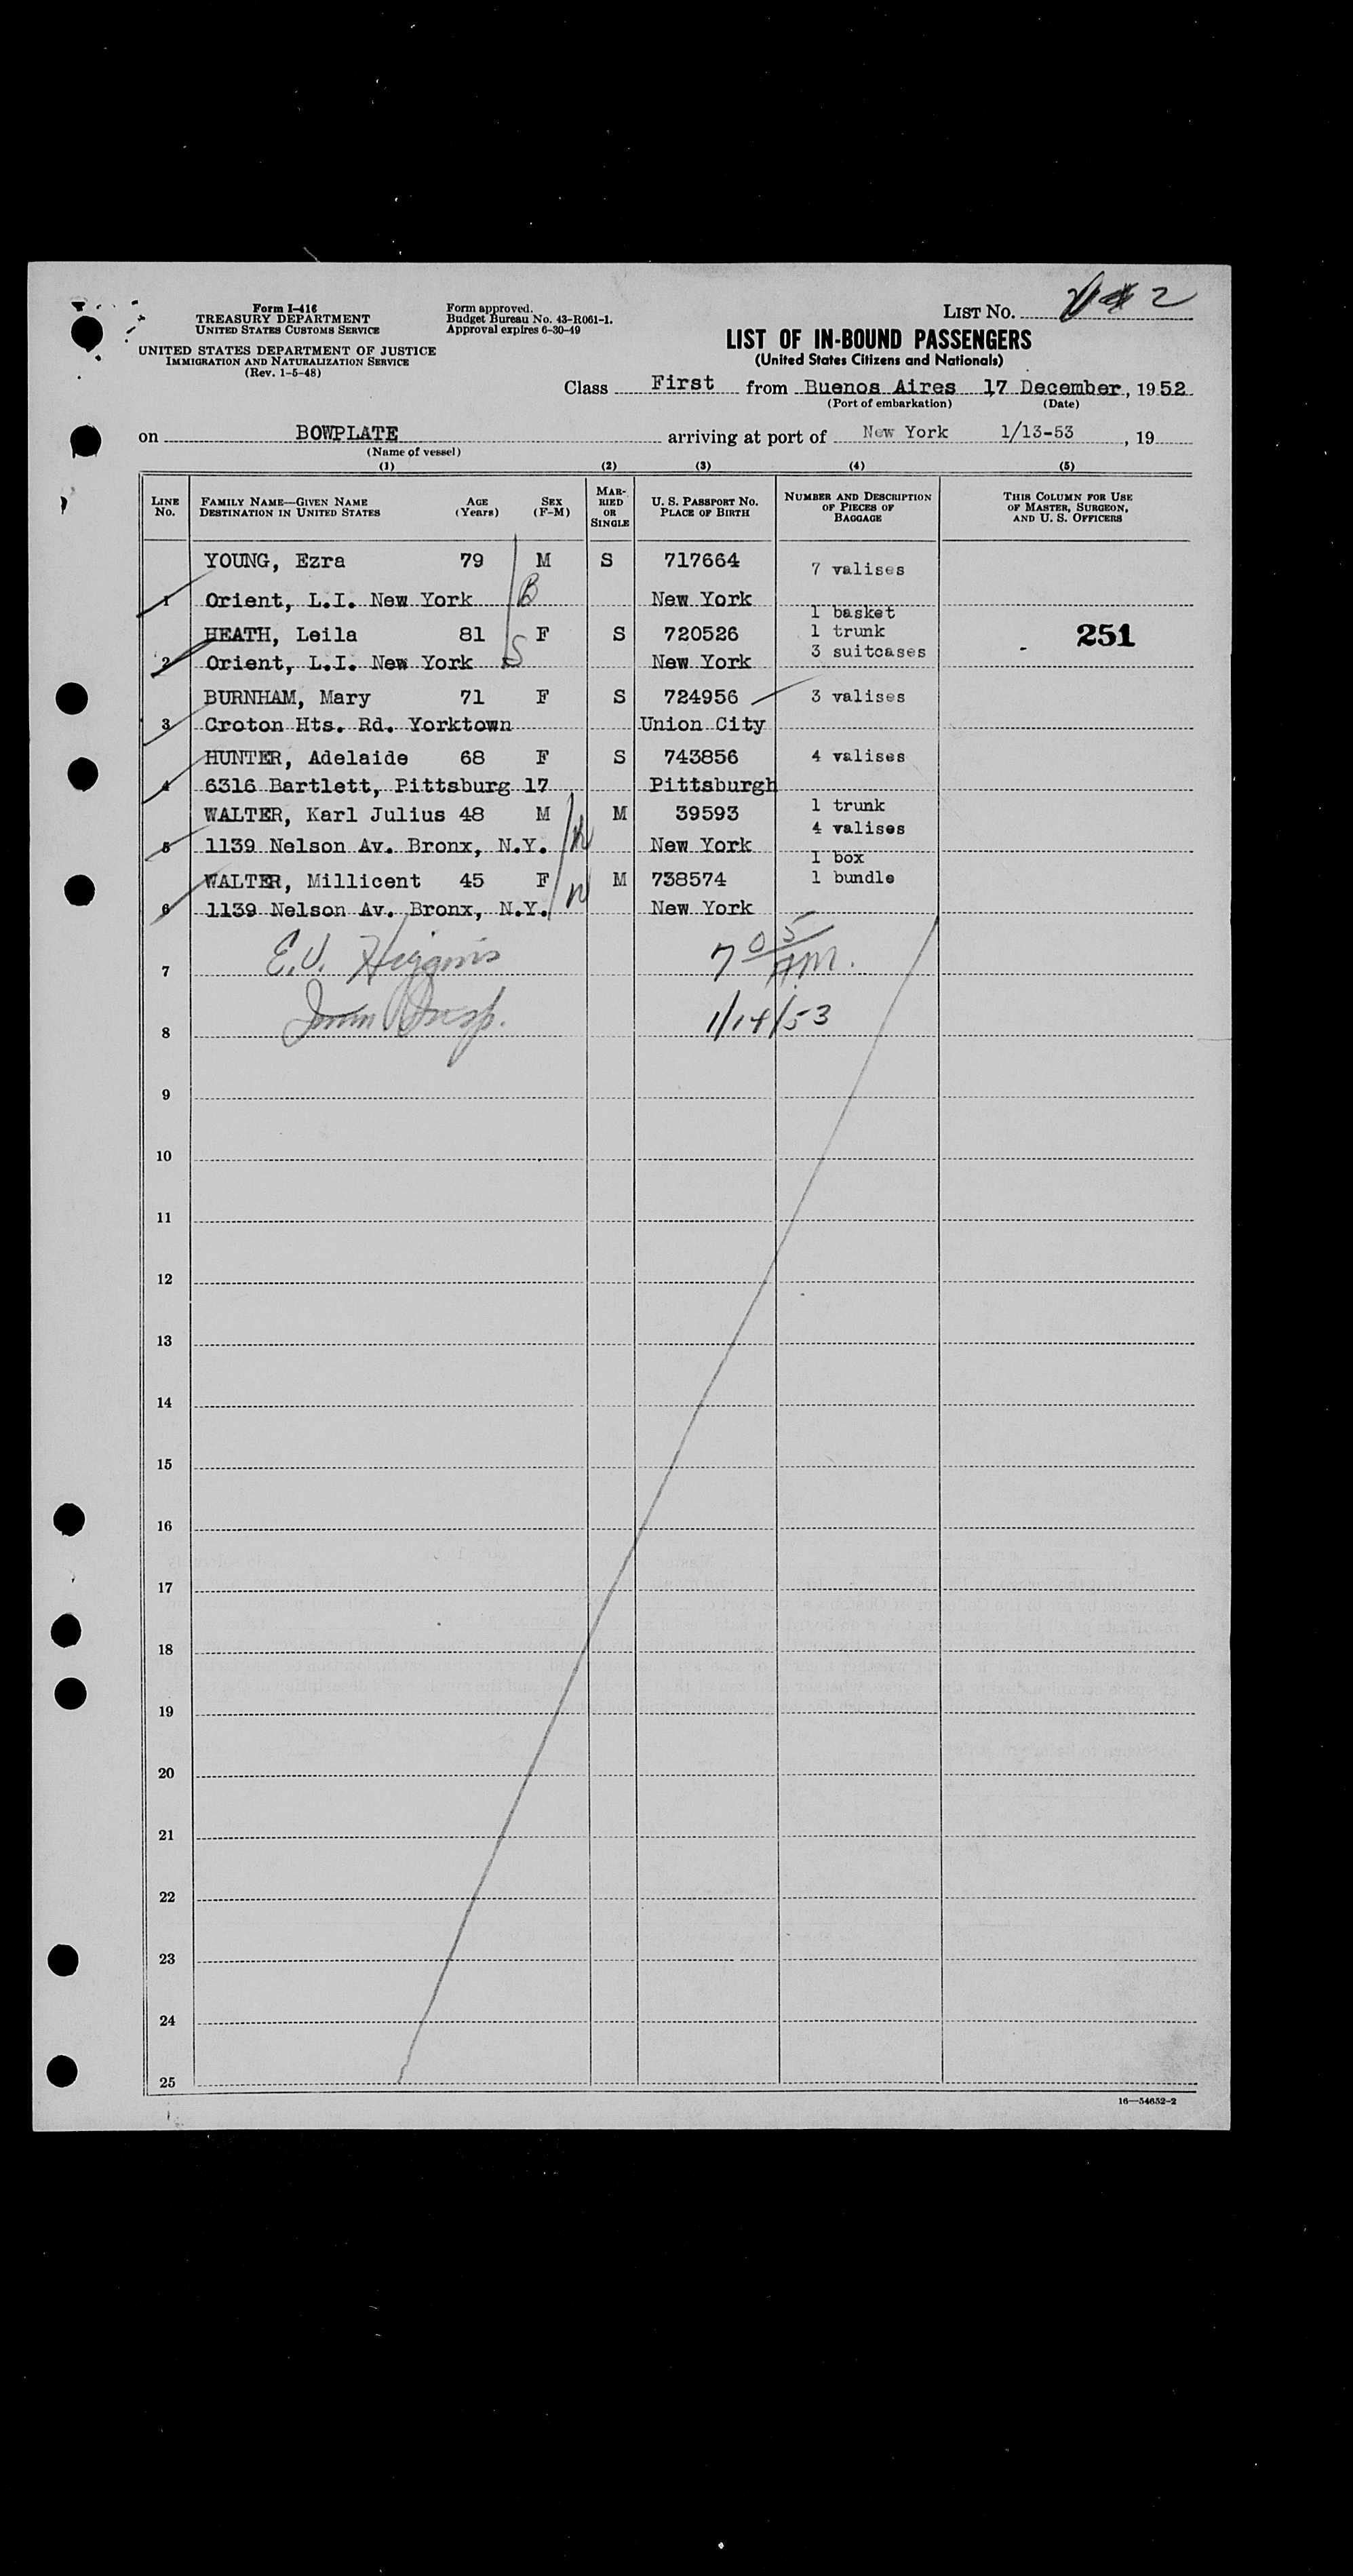 Form I-416
TREASURY DEPARTMENT
UNITED STATES CUSTOMS SERVICE
UNITED STATES DEPARTMENT OF JUSTICE
IMMIGRATION AND NATURALIZATION SERVICE
(Rev. 1-5-48)
Form approved.
Budget Bureau No. 43-R061-1.
Approval expires 6-30-49
LIST No. 2
LIST OF IN-BOUND PASSENGERS
(United States Citizens and Nationals)
Class First from Buenos Aires 17 December, 1952
(Port of embarkation) (Date)
on BOWPLATE arriving at port of New York 1/13-53, 19
(Name of vessel)
(1) (2) (3) (4) (5)
LINE No. FAMILY NAME—GIVEN NAME DESTINATION IN UNITED STATES AGE (Years) SEX (F-M) MARRIED OR SINGLE U. S. PASSPORT NO. PLACE OF BIRTH NUMBER AND DESCRIPTION OF PIECES OF BAGGAGE THIS COLUMN FOR USE OF MASTER, SURGEON, AND U. S. OFFICERS
YOUNG, Ezra 79 M S 717664 7 valises
1 Orient, L.I. New York B New York
1 basket
HEATH, Leila 81 F S 720526 1 trunk 251
2 Orient, L.I. New York S New York 3 suitcases
BURNHAM, Mary 71 F S 724956 3 valises
3 Croton Hts. Rd. Yorktown Union City
HUNTER, Adelaide 68 F S 743856 4 valises
4 6316 Bartlett, Pittsburg 17 Pittsburgh
WALTER, Karl Julius 48 M M 39593 1 trunk
4 valises
5 1139 Nelson Av. Bronx, N.Y. New York
1 box
WALTER, Millicent 45 F M 738574 1 bundle
6 1139 Nelson Av. Bronx, N.Y. New York
7 E.J. Higgins 7 05 AM.
8 Imm Insp. 1/14/53
9
10
11
12
13
14
15
16
17
18
19
20
21
22
23
24
25
16—54652-2